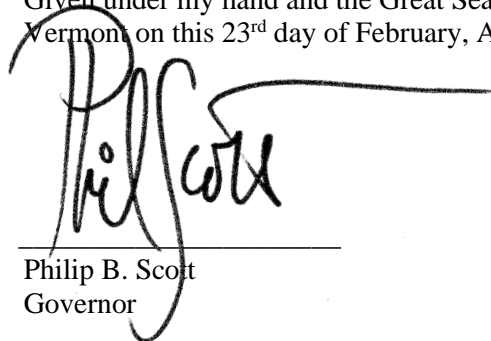 Given under my hand and the Great Sea
Vermont on this 23rd day of February, A
Phil Scott
Philip B. Scott
Governor